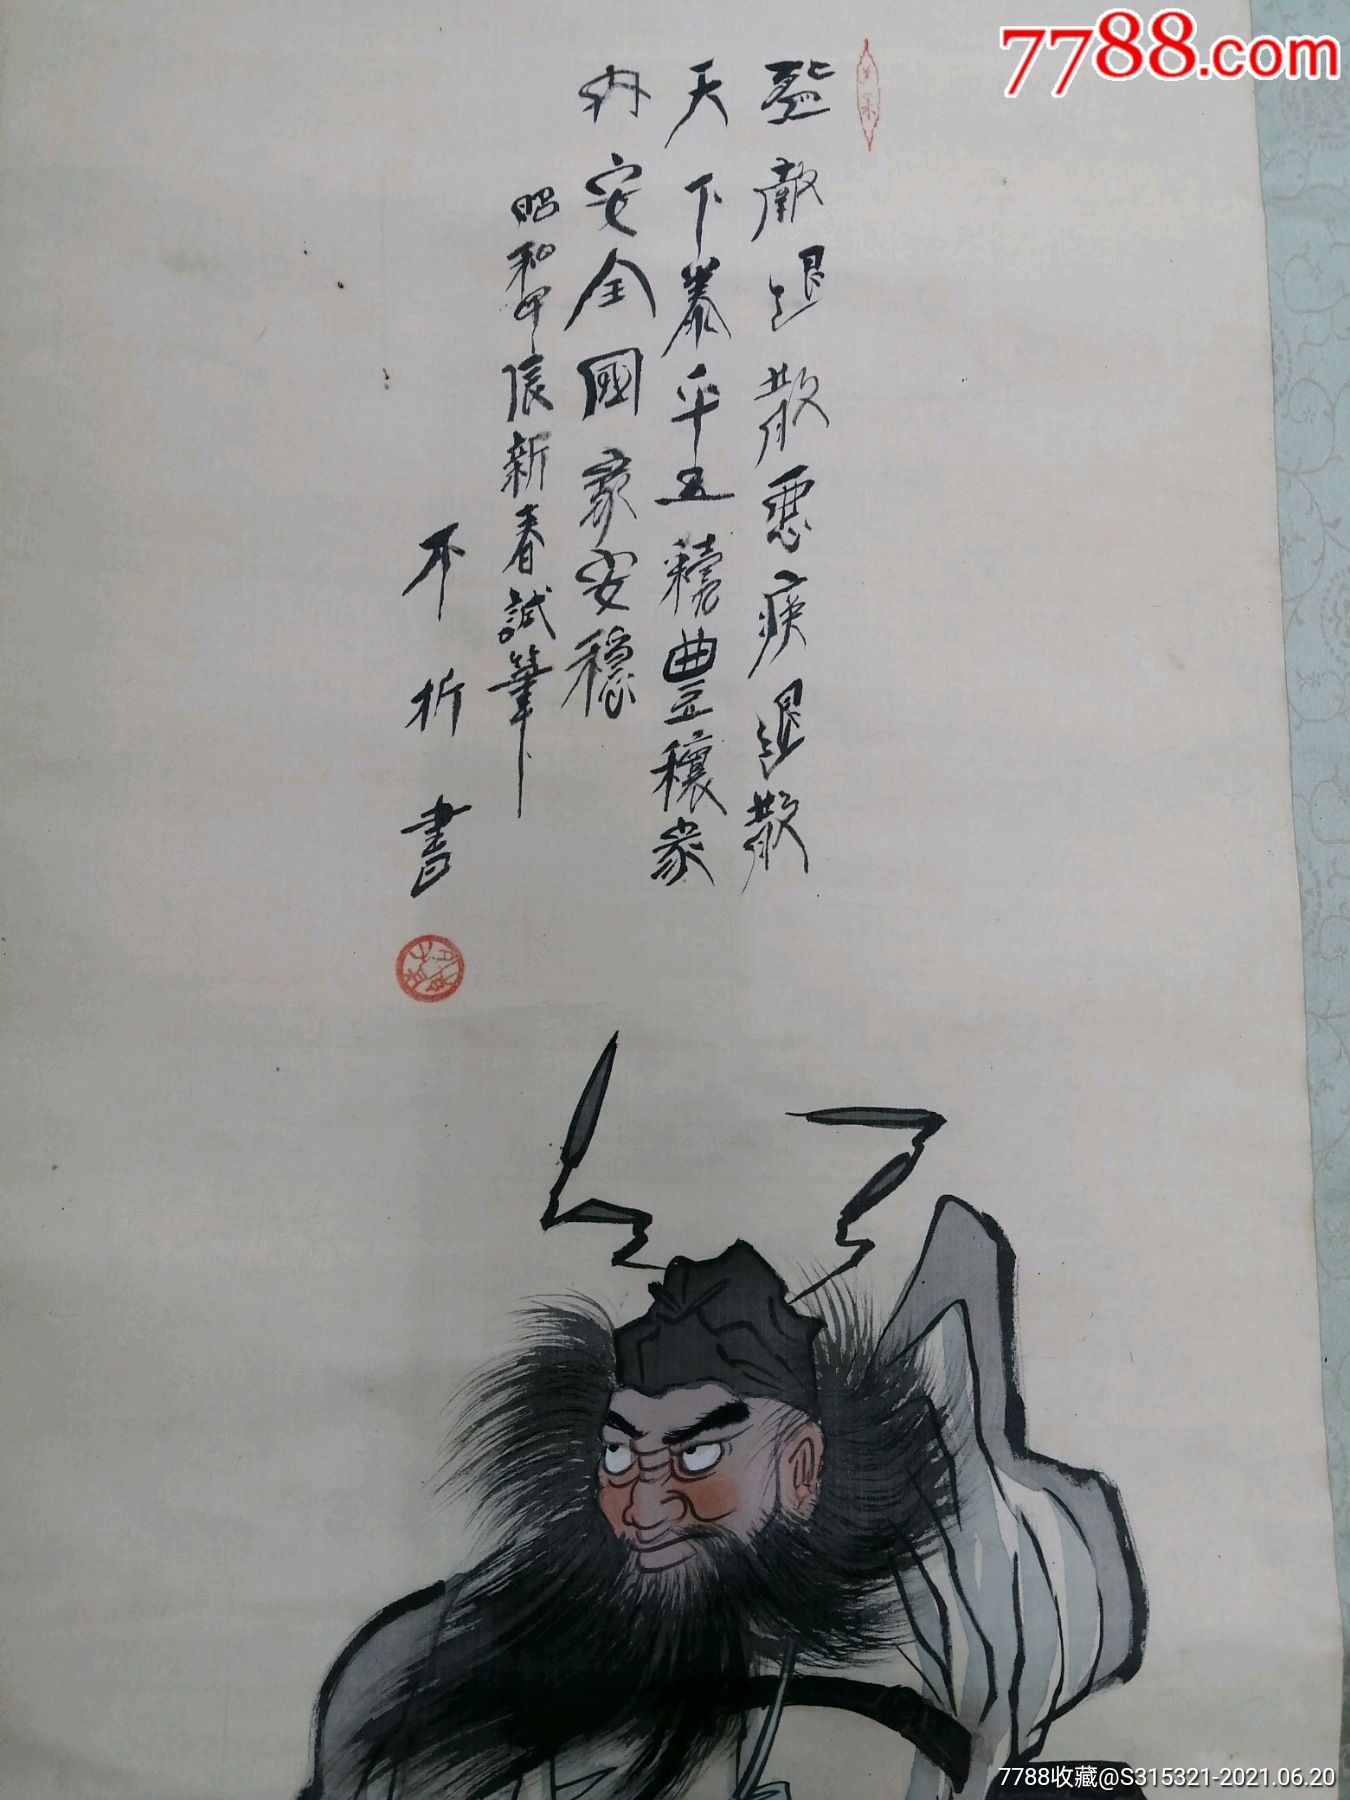 7788.com
敵退散悪疾退散
天下泰平五穀豊穰家
内安全國家安穏
昭和甲辰新春試筆
不折書
7788收藏@S315321-2021.06.20